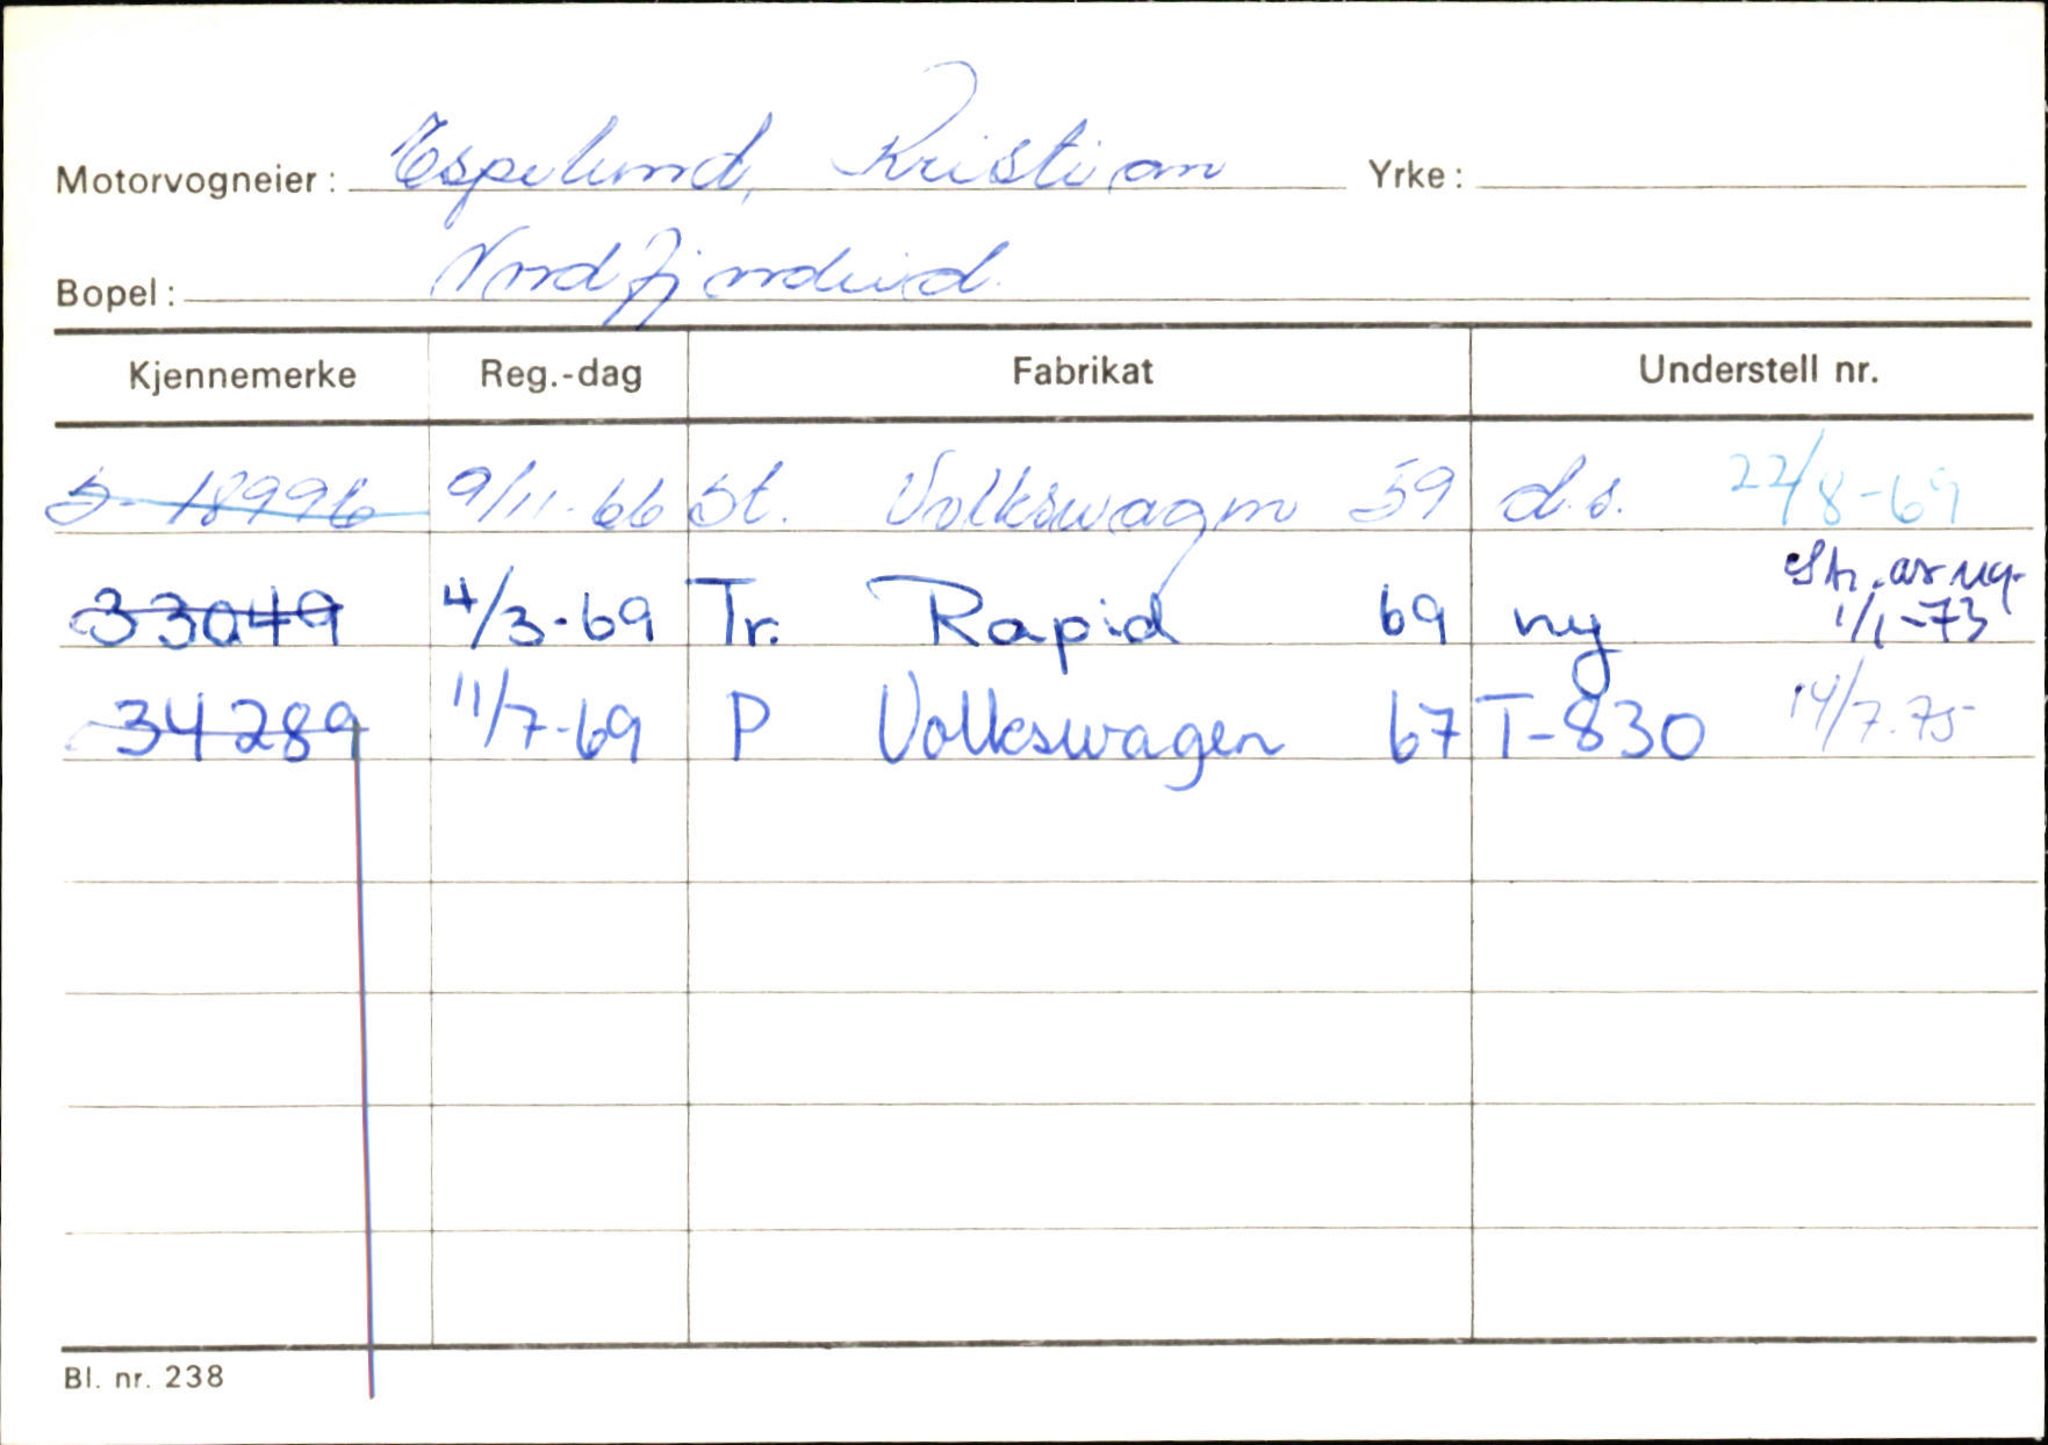 Motorvogneier: Espelund, Kristian Yrke:
Bopel: Nordfjordeid.
Kjennemerke Reg.-dag Fabrikat Understell nr.
S-18996 9/11-66 St. Volkswagen 59 d.s. 22/8-69
33049 4/3-69 Tr. Rapid 69 ny Str. av reg. 1/1-73
34289 11/7-69 P Volkswagen 67 T-830 14/7-75
Bl. nr. 238